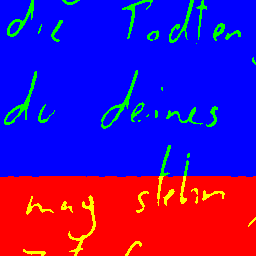 die Todten,
du deines
mag stehn,